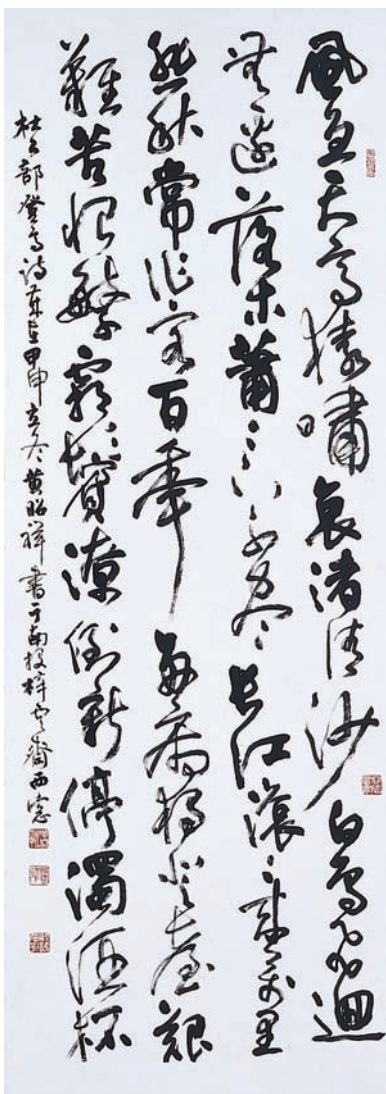 風急天高猿嘯哀渚清沙白鳥飛迴
無邊落木蕭〻下不盡長江滾〻來萬里
悲秋常作客百年多病獨登臺艱
難苦恨繁霜鬢潦倒新停濁酒杯
杜工部登高詩歲在甲申立冬黃昭祥書于南投梓齋西窗